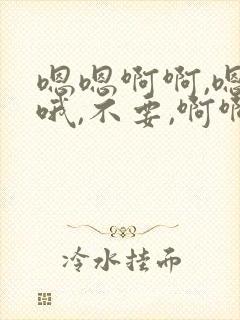 嗯嗯啊啊,嗯
哦,不要,啊啊
冷水挂面